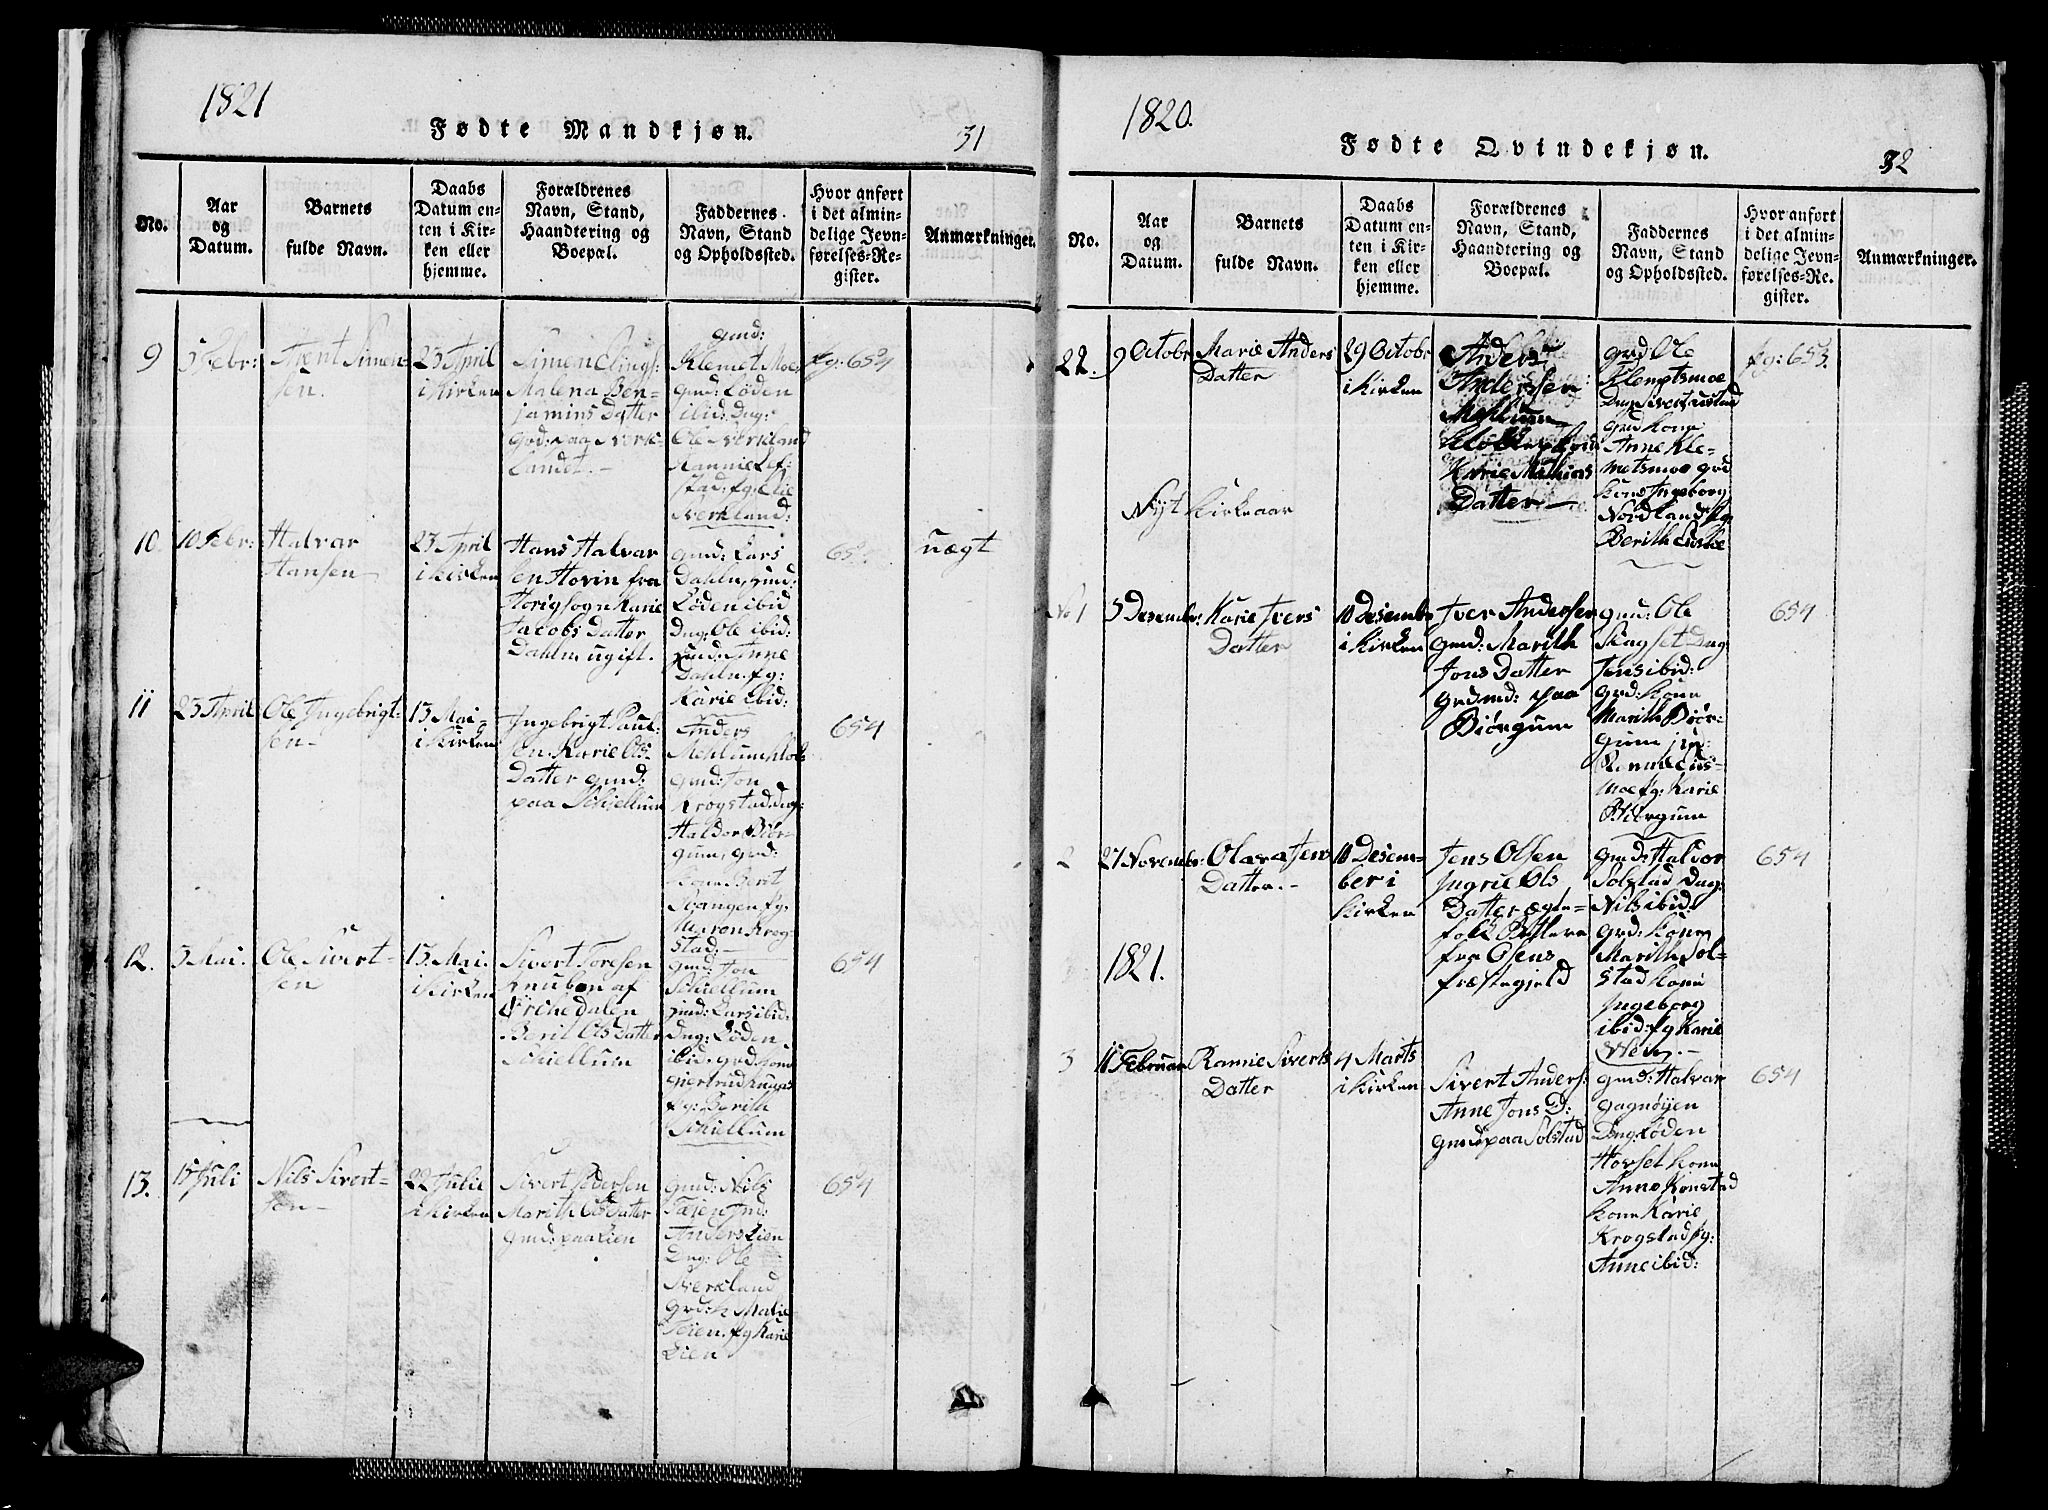 1821
Fødte Mandkjøn.
31
No.
Aar
og
Datum.
Barnets
fulde Navn.
Daabs
Datum en-
ten i Kir-
ken eller
hjemme.
Forældrenes
Navn, Stand,
Haandtering og
Boepæl.
Faddernes
Navn, Stand
og Opholdssted.
Hvor anført
i det almin-
delige Jevn-
førelses-Re-
gister.
Anmærkninger.
9
5 Febr:
Arent Simen-
sen.
23 April
i Kirken
Simen Elings:
Malena Ben-
jamins Datter
paa Nerk-
landet.-
gmd:
Klemet Moe
gmd: Løden
ibid: Dag:
Ole Nerkland
Rannie Lef-
stad: fg: Elie
Nerkland:
fg: 654
10
10 Febr:
Halvar
Hansen
23 April
i Kirken
Hans Halvar
sen Hovin fra
Horig sogn Karie
Jacobs Datter
Dahln ugift.
gmd: Lars
Dahln, gmd:
Løden ibid
Dng: Ole ibid:
gmd: Anne
Dahln. fg:
Karie ibid:
uægt
11
23 April
Ole Ingebrigt-
sen-
13 Mai-
i Kirken
Ingebrigt Paul-
sen. Karie Ols-
Datter gmd:
paa Schiellum
Anders
Mehlum
gmd: Jon
Krogstad, Dng:
Haldor Biør-
gum, grd:
Kone Berit
fg:
Maren Krog-
stad:-
654
12.
3 Mai.
Ole Sivert-
sen
13. Mai.
i Kirken
Sivert Toresen
Knuben af
Orchedalen
Beril Ols Datter
Schiellum
gmd: Jon
Schiellum
gmd: Lars ibid:
Dng: Løden
ibid. grd. kone
giertrud
fg: Berith
Schiellum
654
13.
15 Juli
Nils Sivert-
sen-
22 Julie
i Kirken
Sivert Pedersen
Marith Ols Datter
gmd: paa Lien
gmd: Nils
Teien gmd:
Anders Lien
Dng: Ole
Nerkland
grd: k Malie
Teien. fg Karie
Lien
654
1820.
Fødte Qvindekjøn.
32
No.
Aar
og
Datum.
Barnets
fulde Navn.
Daabs
Datum en-
ten i Kir-
ken eller
hjemme.
Forældrenes
Navn, Stand,
Haandtering og
Boepæl.
Faddernes
Navn, Stand
og Opholdssted.
Hvor anført
i det almin-
delige Jevn-
førelses-Re-
gister.
Anmærkninger.
22.
9 Octobr
Marie Anders
Datter
29 Octobr
i Kirken
Anders
Andersen
Mehlum
Karie Mathias
Datter-
grd: Ole
Klemptsmoe
grd kone
Anne Kle-
metsmoe grd
kone Ingeborg
Nordland fg
Berith
fg: 653.
Nyt Kirkeaar
No 1
5 Desembr:
Karie Ivers
Datter
10 Desembr
i Kirken
Iver Andersen
gmd: Marith
Jons Datter
grdmd: paa
Biørgum
gmd: Ole
Skogset Dng
Jens ibid:
grd: kone
Marith Biør-
gum
Moe fg: Karie
Biørgum
654
2
27 Novembr:
Olava Jens
Datter.-
10 Desem-
ber i
Kirken
Jens Olsen
Ingrie Ols
Datter ægte-
folk Betlere
fra Osens
Præstegield
gmd: Halvor
Solstad Dng:
Nils ibid:
grd: kone
Marith Sol-
stad kone
Ingeborg
ibid: fg Karie
654
1821.
3
11 Februar
Rannie Siverts
Datter
4 Marts
i Kirken
Sivert Anders:
Anne Jons D:
gmd paa Solstad
gmd: Halvar
gagnøyen
Dng: Løden
Hovset kone
Anne Konstad
kone Karie
Krogstad fg:
Anne ibid:
654